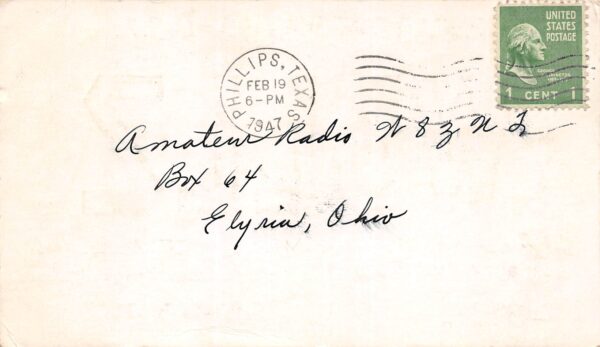 UNITED
STATES
POSTAGE
1 CENT 1
PHILLIPS, TEXAS
FEB 19
6-PM
1947
Amateur Radio W 8 Z N
Box 64
Elyria, Ohio